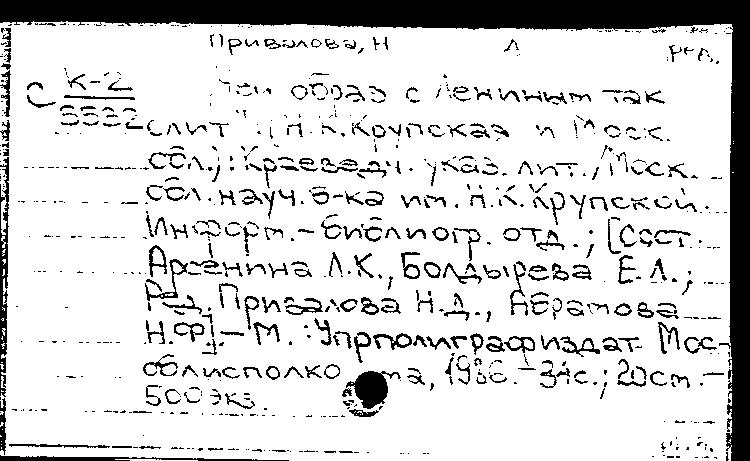 Привалова, Н Л ред.
С К-2
5532
Чей образ с Лениным так
слит": (Н.К.Крупская и Моск.
обл.): Краеведч. указ. лит./Моск.
обл. науч. б-ка им. Н.К.Крупской.
Информ.-библиогр. отд.; [Сост.
Арсенина Л.К., Болдырева Е.Л.;
Ред. Привалова Н.Д., Абрамова
Н.Ф.].- М. : Упрполиграфиздат Мос-
облисполко та, 1986.- 34с.; 20см.-
500экз.